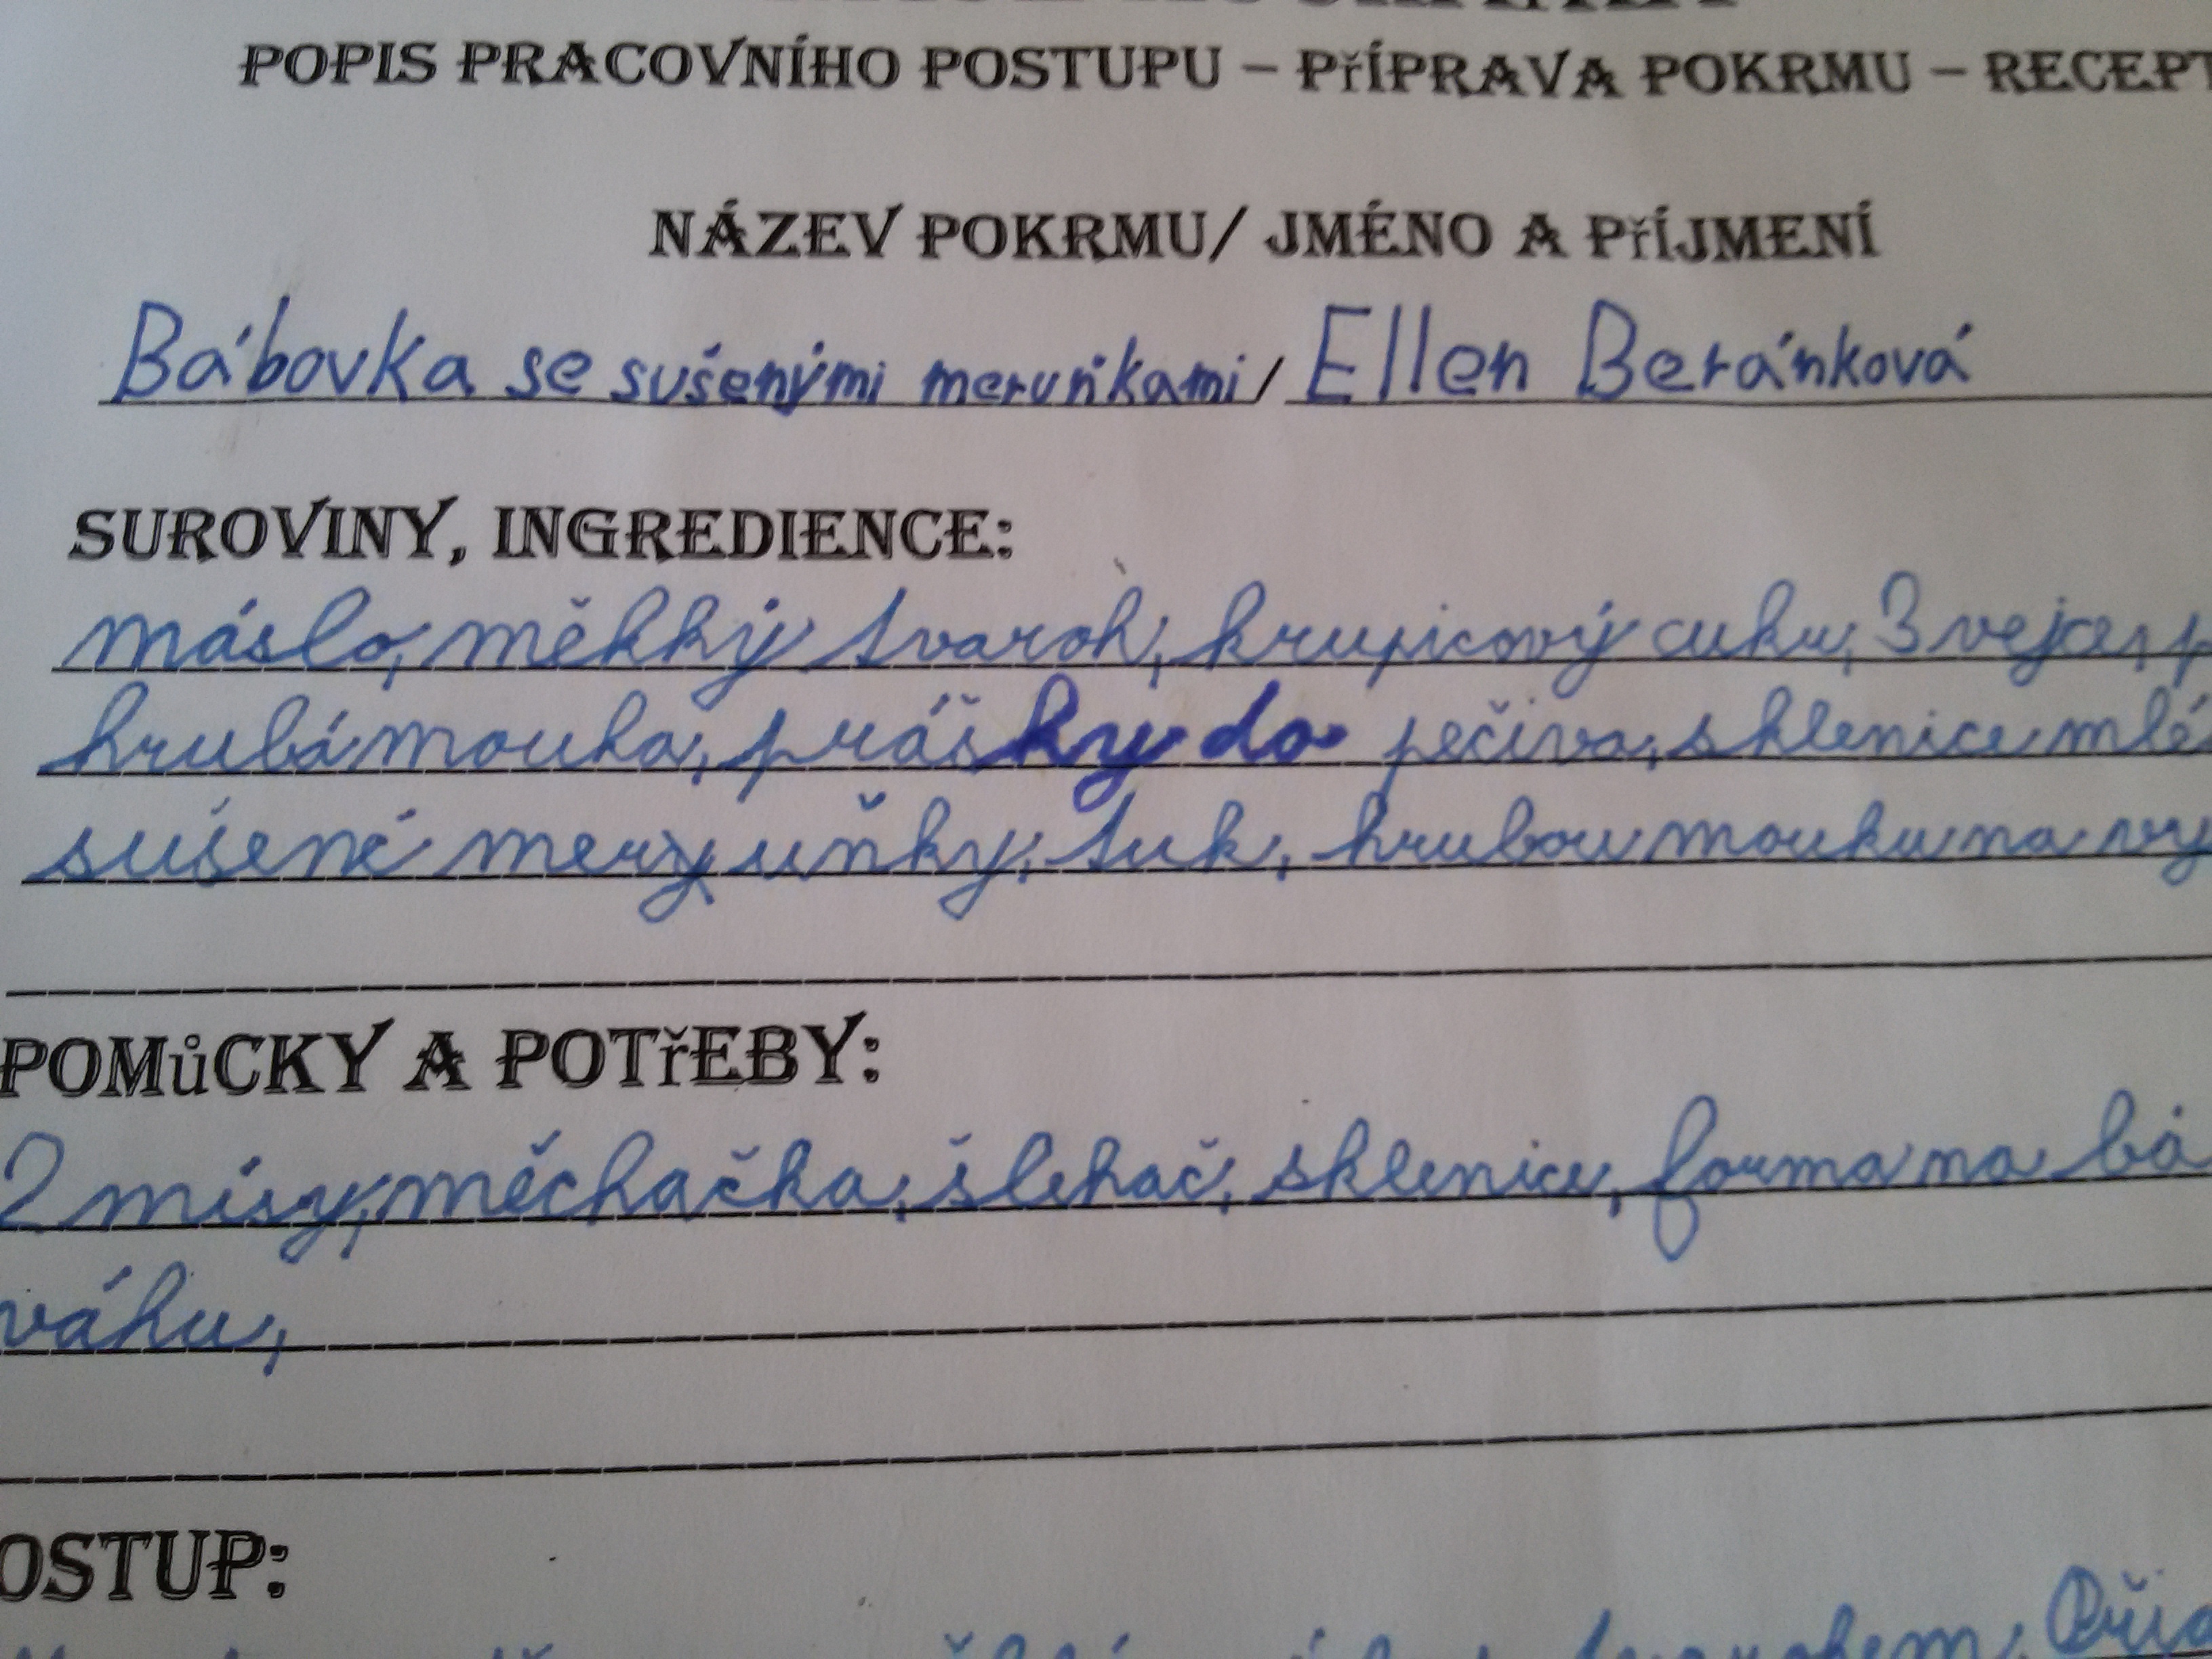 POPIS PRACOVNÍHO POSTUPU – PŘÍPRAVA POKRMU – RECEPT
NÁZEV POKRMU/ JMÉNO A PŘÍJMENÍ
Bábovka se sušenými meruňkami / Ellen Beránková
SUROVINY, INGREDIENCE:
máslo, měkký tvaroh, krupicový cukr, 3 vejce,
hrubá mouka, prášky do pečiva, sklenice mlé
sušené meruňky, tuk, hrubou mouku na vy
POMůCKY A POTřEBY:
2 mísy, měchačka, šlehač, sklenice, forma na bá
váhu,
OSTUP: